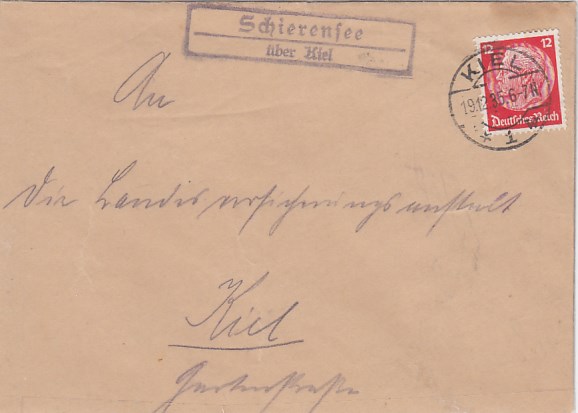 Schierensee
über Kiel
12 12
Deutsches Reich
KIEL
19.12.36.6-7N
* 1
An
Die Landesversicherungsanstalt
Kiel
Gartenstraße